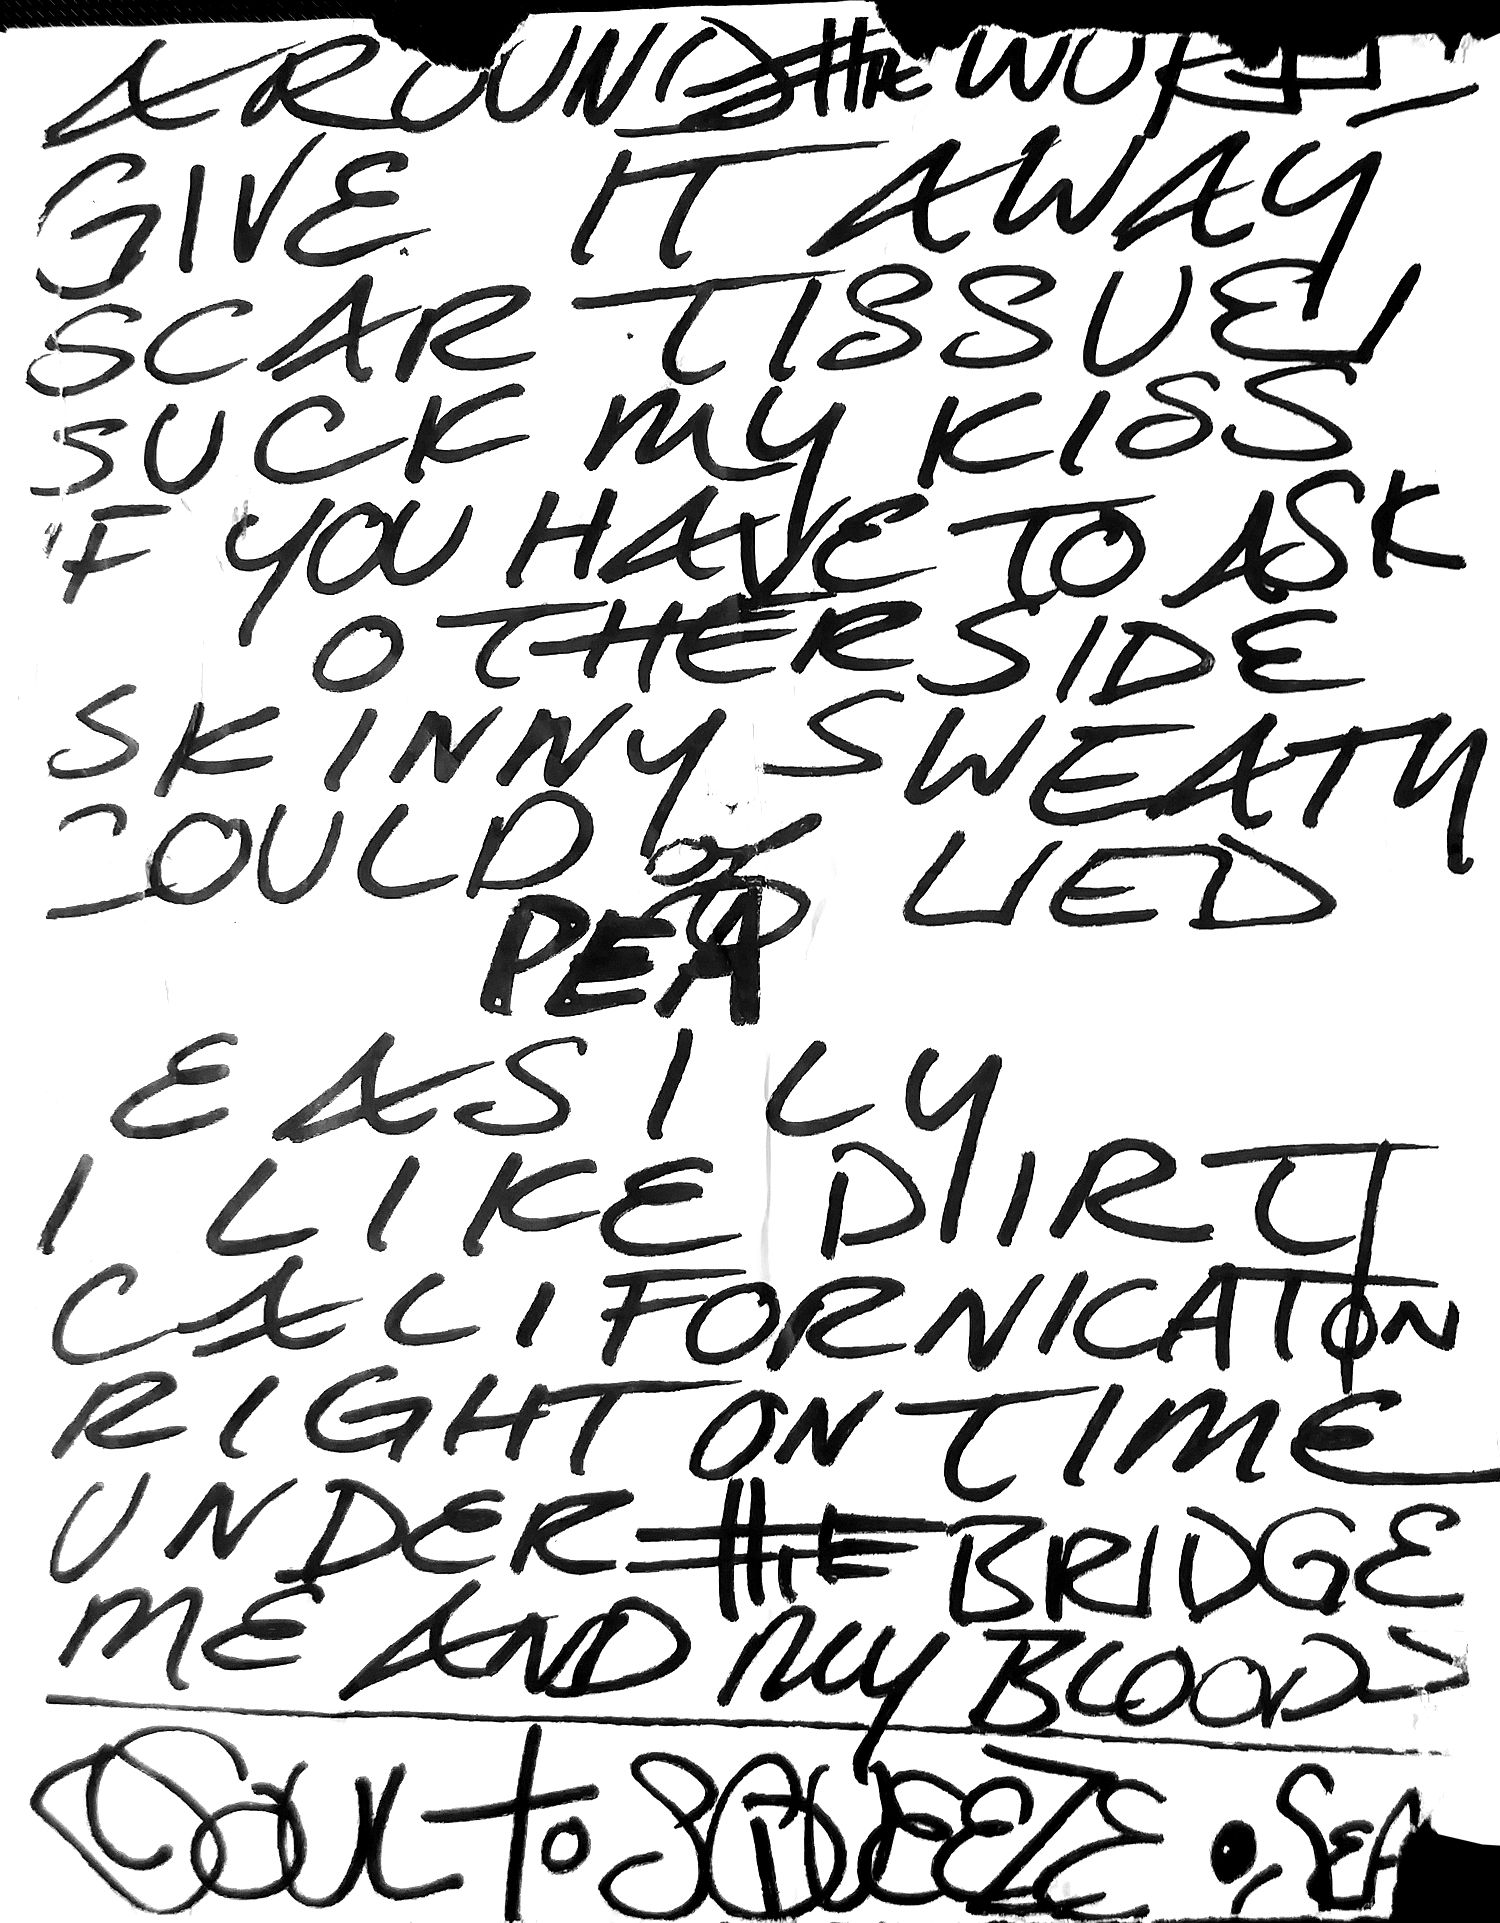 AROUND the WORLD
GIVE IT AWAY
SCAR TISSUE
SUCK MY KISS
IF YOU HAVE TO ASK
OTHERSIDE
SKINNY SWEATY
COULD OF LIED
PEA
EASILY
I LIKE DIRT
CALIFORNICATON
RIGHT ON TIME
UNDER THE BRIDGE
ME AND MY BLOOD
SOUL to SQUEEZE • SEA